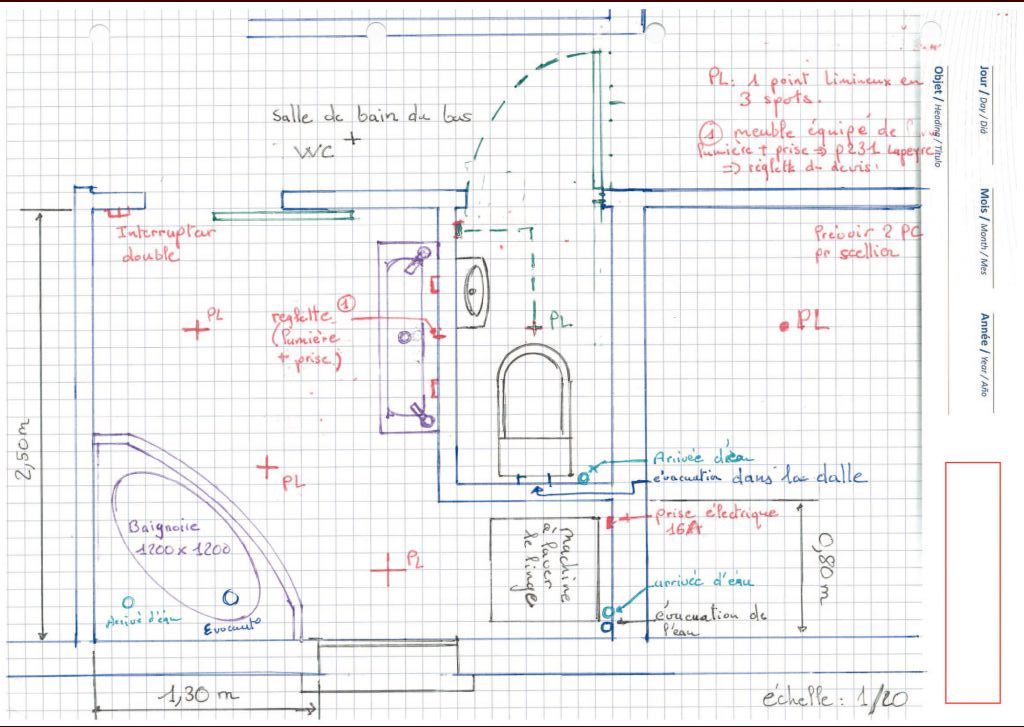 PL: 1 point limineux en
3 spots.
① meuble équipé de
lumière + prise ⇒ p231 Lapeyre
⇒ réglette du devis.
Jour / Day / Día
Objet / Heading / Título
Mois / Month / Mes
Année / Year / Año
salle de bain du bas
+
WC
Interrupteur
double
Prévoir 2 PC
pr scellier
PL
reglette ①
(lumière
+ prise)
PL
PL
2,50m
PL
Arrivée d'eau
évacuation dans la dalle
prise électrique
16A
Baignoire
1200 x 1200
machine
à laver
le linge
0,80 m
PL
arrivée d'eau
évacuation de
l'eau
Arrivé d'eau
1,30 m
échelle: 1/20